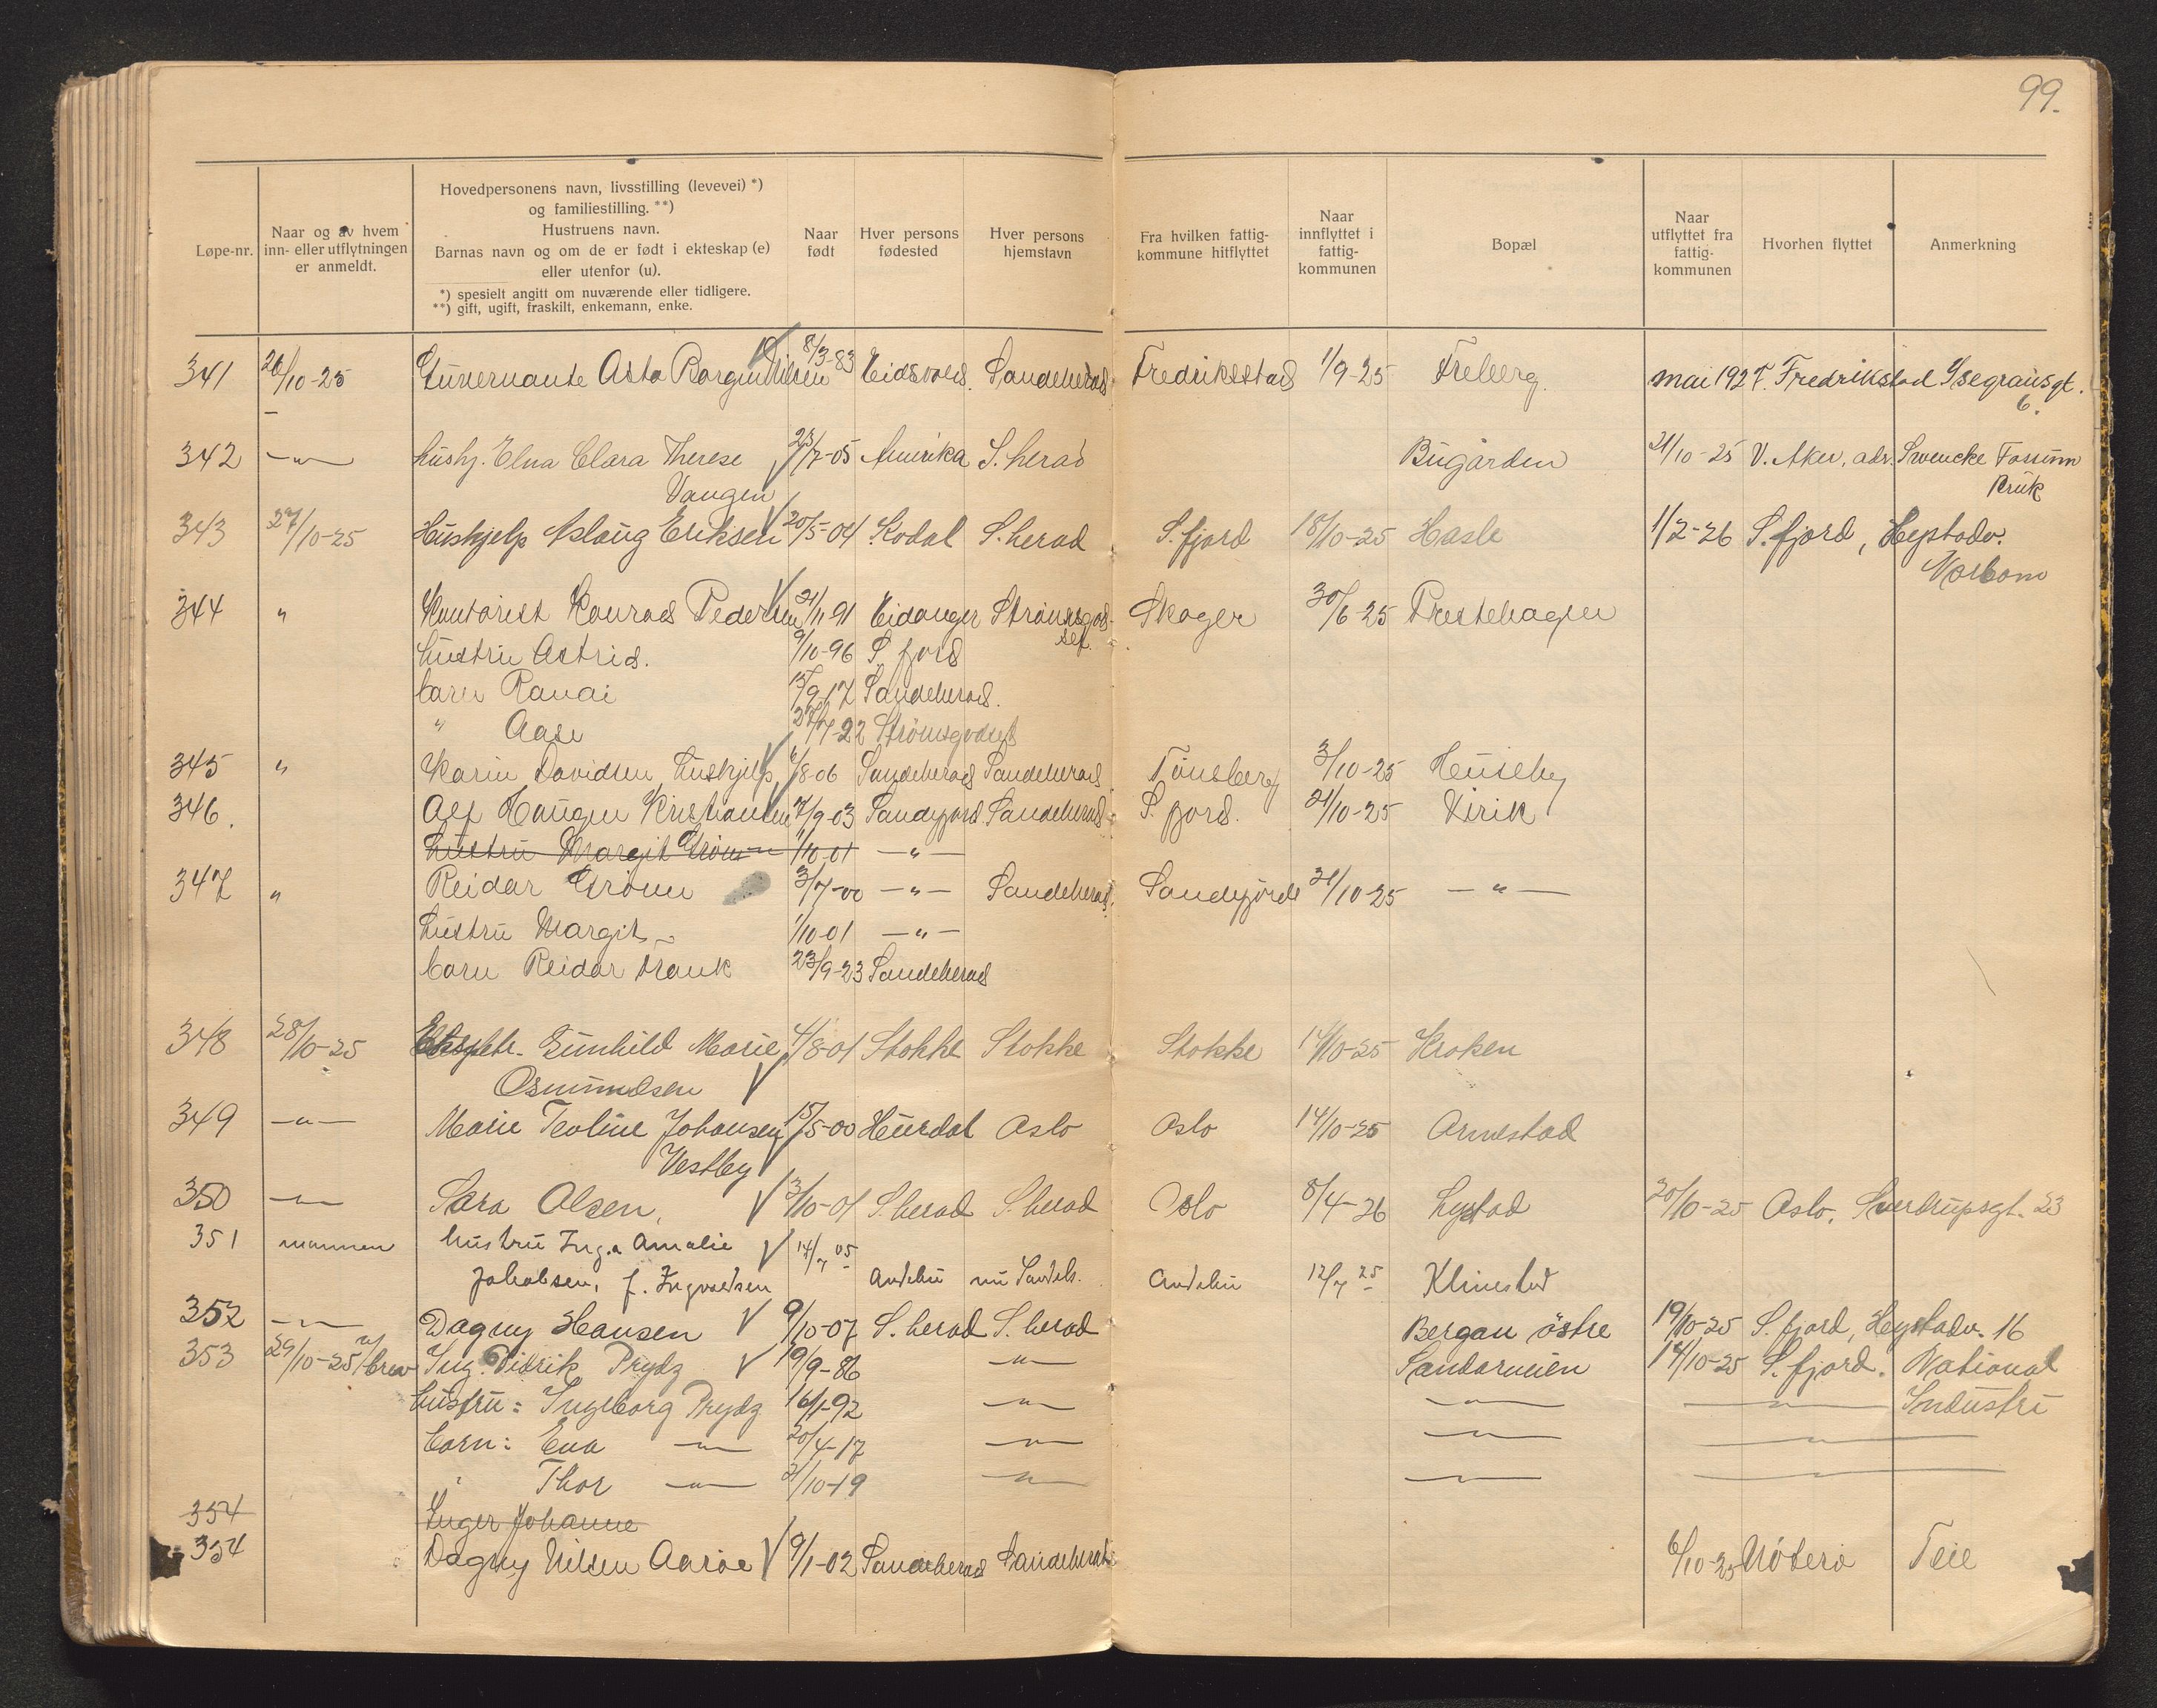 99.
Løpe-nr.
Naar og av hvem
inn- eller utflytningen
er anmeldt.
Hovedpersonens navn, livsstilling (levevei) *)
og familiestilling. **)
Hustruens navn.
Barnas navn og om de er født i ekteskap (e)
eller utenfor (u).
*) spesielt angitt om nuværende eller tidligere.
**) gift, ugift, fraskilt, enkemann, enke.
Naar
født
Hver persons
fødested
Hver persons
hjemstavn
Fra hvilken fattig-
kommune hitflyttet
Naar
innflyttet i
fattig-
kommunen
Bopæl
Naar
utflyttet fra
fattig-
kommunen
Hvorhen flyttet
Anmerkning
341 26/10-25 Guvernante Asta 8/3-83 Eidsvold. Sandeherad Fredriksstad 1/9-25 Freberg. mai 1927. Fredrikstad
6.
342 —"— hushj. Elna Clara Therese 23/7-05 Amerika S. herad Bugården 21/10-25 V. Aker, adr. Swencke Fossum
Vangen Bruk
343 27/10-25 Hushjelp Aslaug Eriksen 20/5-04 Kodal S. herad S. fjord 18/10-25 Hasle 1/2-26 S. fjord, Hystadv.
344 " Kontorist Konrad Pedersen 21/11-91 Eidanger Strømsgod- Skoger 30/6-25 Prestehagen
set.
hustru Astrid. 9/10-96 S. fjord
barn Ranai 15/9-17 Sandeherad.
" Aase 27/7-22 Strømsgodset
345 " Karin Davidsen, hushjelp 6/8-06 Sandeherad Sandeherad Tønsberg 3/10-25 Huseby
346. Alf Haugen Kristiansen 7/9-03 Sandefjord Sandeherad S. fjord. 21/10-25 Virik
hustru Margit Grønn 1/10-01 —"—
347 " Reidar Grønn 3/7-00 —"— Sandeherad. Sandefjord 21/10-25 —"—
hustru Margit 1/10-01 —"—
barn Reidar Frank 23/9-23 Sandeherad
348 28/10-25 Gunhild Marie 4/8-01 Stokke Stokke Stokke 14/10-25 Kroken
Osmundsen
349 —"— Marie Teoline Johansen 15/5-00 Hurdal Oslo Oslo 14/10-25 Arnestad
Vestby
350 —"— Sara Olsen, 3/10-01 S. herad S. herad Oslo 8/4-26 Lystad 20/10-25 Oslo. Sverdrupsgt. 23
351 mannen hustru Inga Amalie 14/7 05
Jakobsen, f. Ingvaldsen Andebu nu Sandeh. Andebu 12/7 25 Klinestad
352 —"— Dagny Hansen 9/10-07 S. herad S. herad Bergan östre 19/10-25 S. fjord, Hystadv. 16
353 29/10-25 brev Ing. Didrik Prydz 19/9-86 —"— Sandarmeien 14/10-25 S. fjord. National
hustru: Ingeborg Prydz 16/1-92 —"— —"— —"— Industri
barn: Eva —"— 20/4-17 —"— —"— —"—
" Thor —"— 2/10-19 —"— —"— —"—
354 Inger Johanne
354 Dagny Nilsen Aarøe 9/1-02 Sandeherad Sandeherad 6/10-25 Nöterö Teie